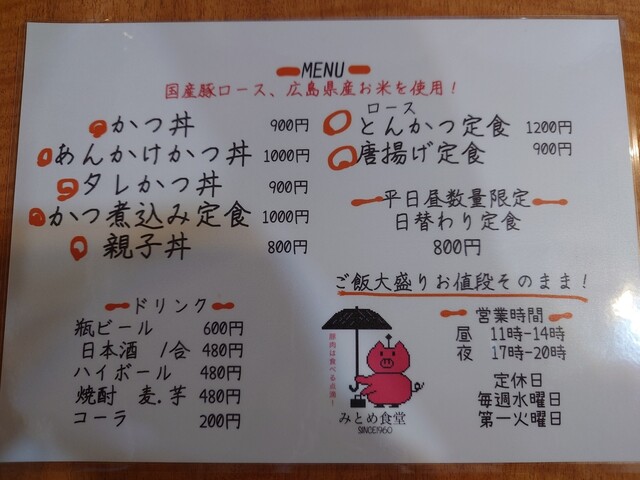 MENU
国産豚ロース、広島県産お米を使用！
かつ丼 900円
あんかけかつ丼 1000円
タレかつ丼 900円
かつ煮込み定食 1000円
親子丼 800円
ロース
とんかつ定食 1200円
唐揚げ定食 900円
平日昼数量限定
日替わり定食
800円
ご飯大盛りお値段そのまま！
ドリンク
瓶ビール 600円
日本酒 1合 480円
ハイボール 480円
焼酎 麦.芋 480円
コーラ 200円
豚肉は食べる点滴！
みとめ食堂
SINCE1960
営業時間
昼 11時-14時
夜 17時-20時
定休日
毎週水曜日
第一火曜日